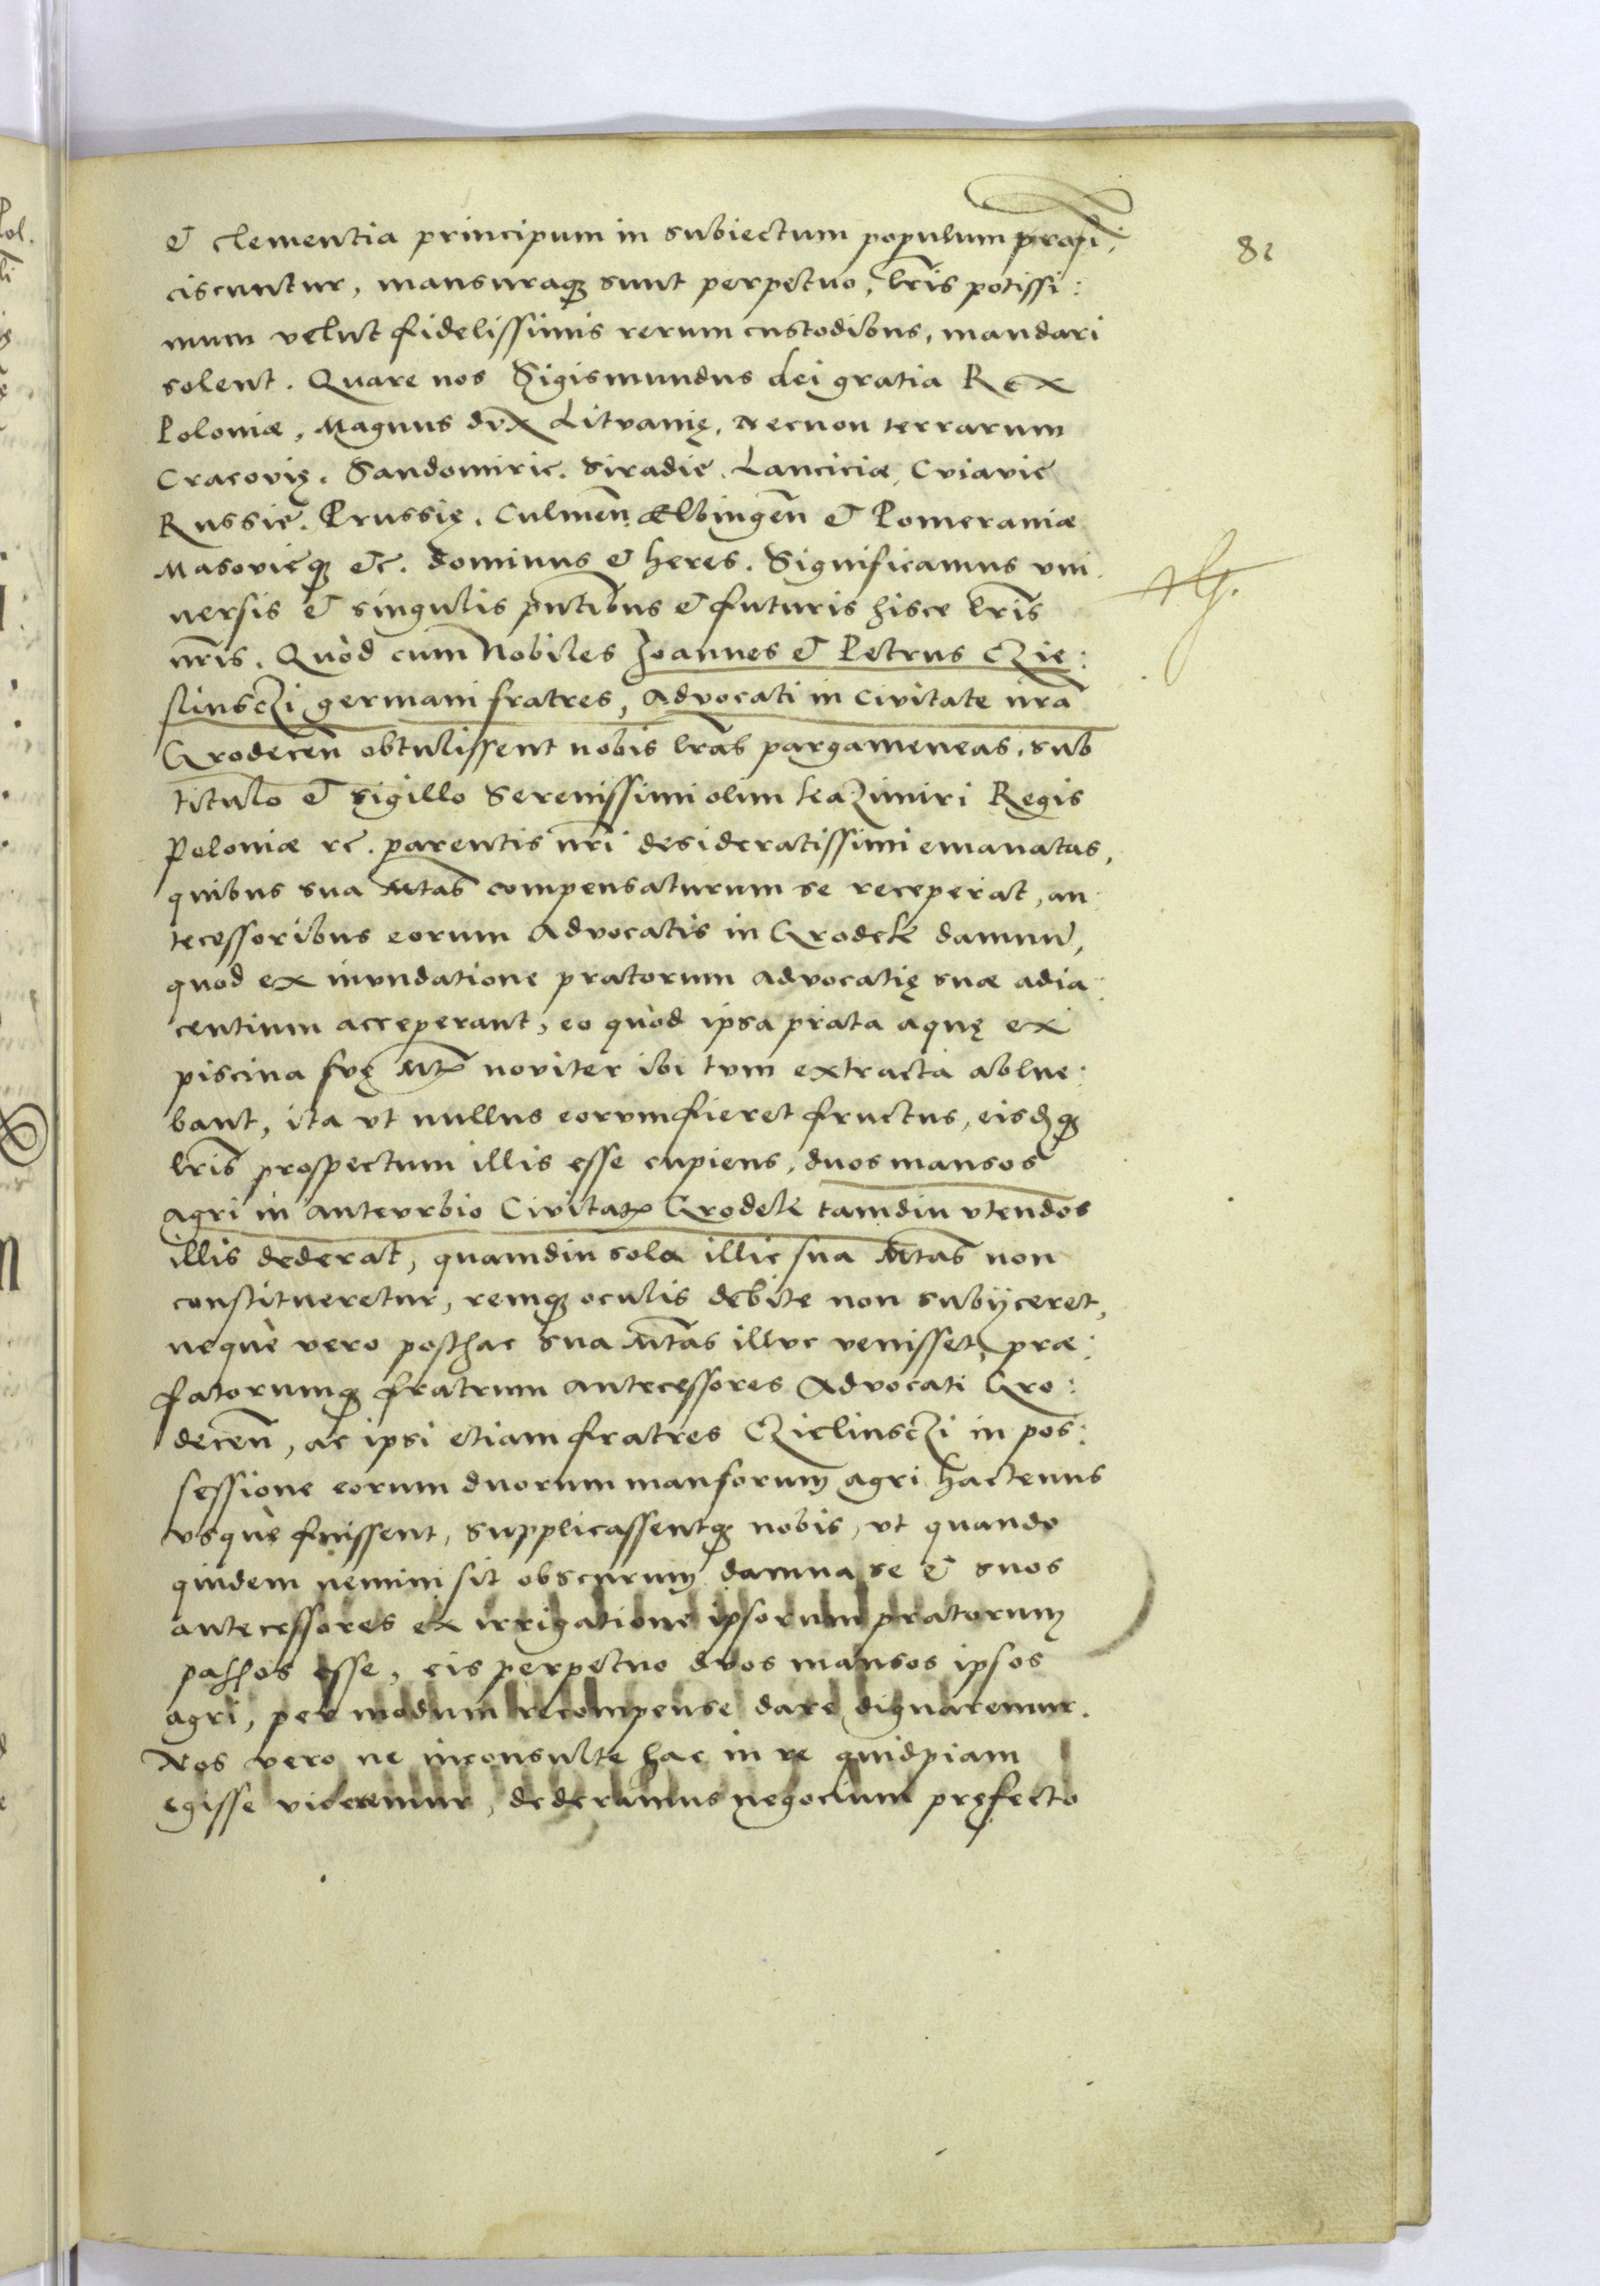 81
& clementia principum in subiectum populum profi:
ciscuntur, mansuraq₃ sunt perpetuo, lr̄is potissi:
mum velut fidelissimis rerum custodibus, mandari
solent. Quare nos Sigismundus dei gratia Rex
Poloniæ, Magnus dux Litvanię, Necnon terrarum
Cracovię, Sandomirie, Siradie, Lanciciæ, Cviavie
Russie, Prussię, Culmen̄ Ælbingen̄ & Pomeraniæ
Masovieq₃ &c. dominus & heres. Significamus vni
versis & singulis pn̄tibus & futuris hisce lr̄is
nr̄is. Quòd cum Nobiles Joannes & Petrus Czie:
linsczi germani fratres, Advocati in Civitate nr̄a
Grodecen̄ obtulissent nobis lr̄as pargameneas, sub
titulo & sigillo Serenissimi olim Kazimiri Regis
Poloniæ &c. parentis nr̄i desideratissimi emanatas,
quibus sua Mtas compensaturum se receperat, an:
tecessoribus eorum Advocatis in Grodek damnū,
quod ex invndatione pratorum advocatię suæ adia:
centium acceperant, eo quòd ipsa prata aquę ex
piscina suę Mtis noviter ibi tum extracta ablue:
bant, ita vt nullus eorvm fieret fructus, eisdq₃
lr̄is prospectum illis esse cupiens, duos mansos
agri in antevrbio Civitatis Grodek tamdiu vtendos
illis dederat, quamdiu sola illic sua Mtas non
constitueretur, remq₃ oculis debite non subijceret,
neque vero posthac sua Mtas illuc venisset, præ:
fatorumq₃ fratrum antecessores Advocati Gro:
decen̄, ac ipsi etiam fratres Czielinsczi in pos:
sessione eorum duorum mansorum agri hactenus
vsque fuissent, supplicassentq₃ nobis, vt quando
quidem nemini sit obscurum damna se & suos
antecessores ex irrigatione ipsorum pratorum
passos esse, eis perpetuo duos mansos ipsos
agri, per modum recompense dare dignaremur.
Nos vero ne inconsulte hac in re quidpiam
egisse videremur, dederamus negocium pręfecto